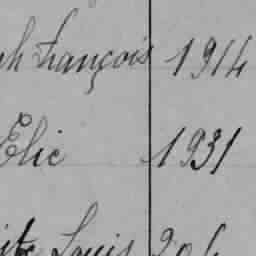 ph François 1914
Elie 1931
Louis 206